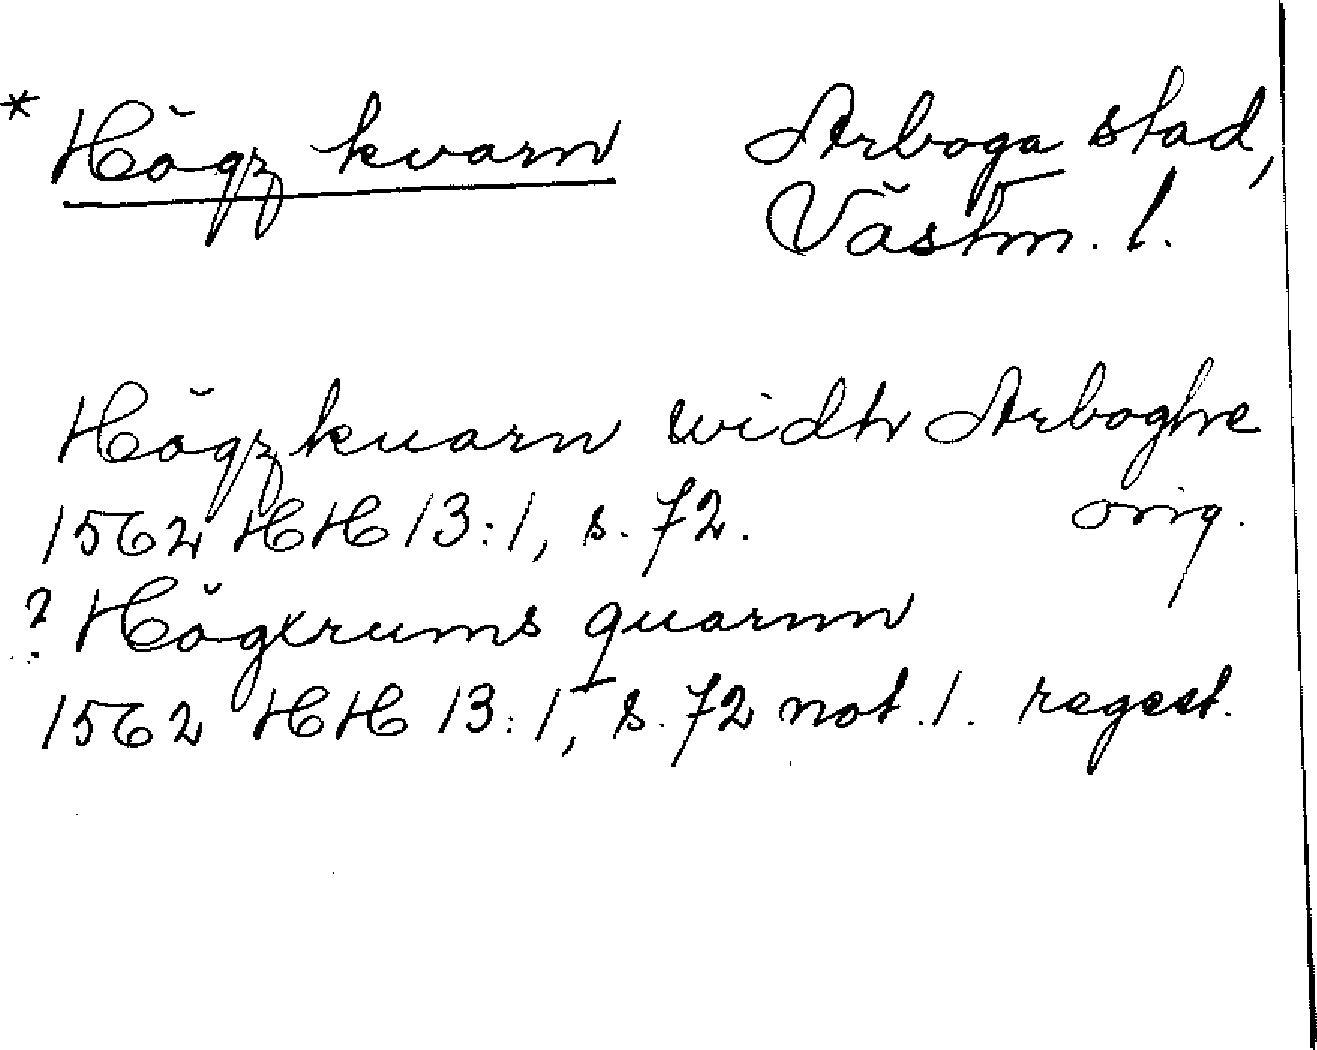 * Högz kvarn Arboga stad,
Västm. l.
Högzkuarn widh Arboghe
1562 HH 13:1, s. 72. orig.
? Högxrums quarnn
1562 HH 13:1, s. 72 not. 1. regest.